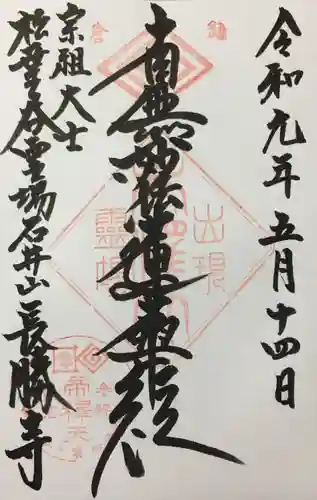 令和元年五月十四日
鎌倉
南無妙法蓮華経
出現
霊場
宗祖大士
松葉谷霊場石井山長勝寺
帝釋天